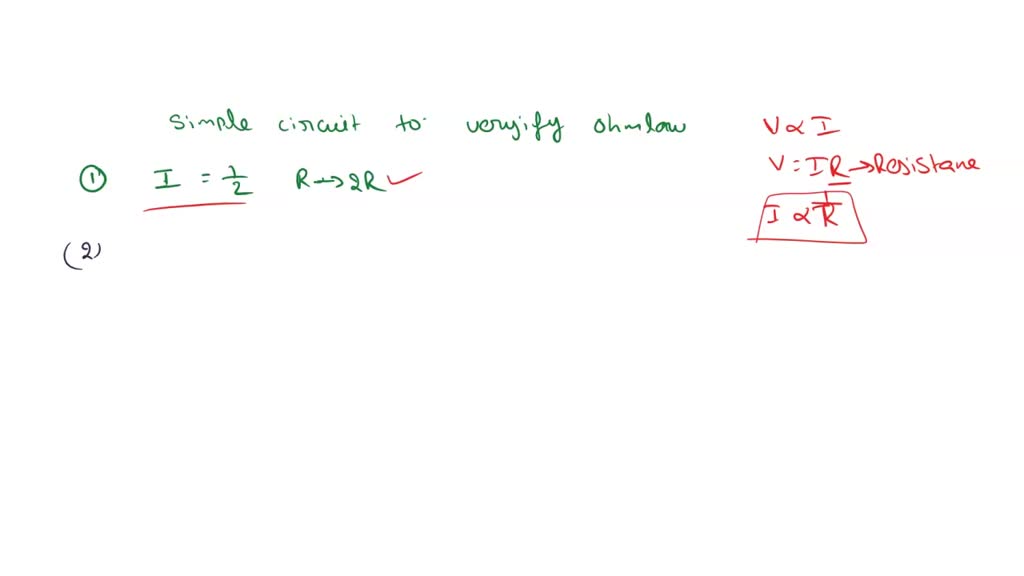 simple circuit to veryify ohmlaw
① I = 1/2 R → 2R ✓
(2)
V ∝ I
V = IR → Resistane
I ∝ 1/R